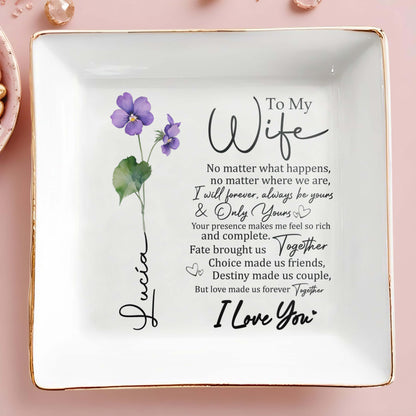 To My
Wife
No matter what happens,
no matter where we are,
I will forever, always be yours
& Only Yours
Your presence makes me feel so rich
and complete.
Fate brought us Together
Choice made us friends,
Destiny made us couple,
But love made us forever Together
I Love You
Lucía